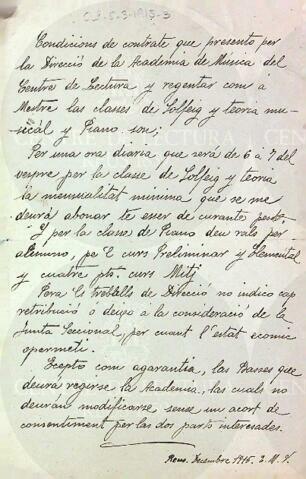 C.L.-5-3-1915-3
Condicions de contrate que presento per
la Direcció de la Academia de Música del
Centre de Lectura y regentar com a
Mestre las classes de Solfeig y teoria mu-
sical y Piano son;
Per una ora diaria que será de 6 á 7 del
vespre per la classe de Solfeig y teoria
la mensualitat minima que se me
deurá abonar te eser de curante
Y per la classe de Piano deu rals per
alumno, pe l curs Preliminar y Elemental
y cuatre pts curs Mitj
Para ls treballs de Direcció no indico cap
retribució ó deixo a la consideració de la
Junta Seccional, per cuant l'estat economic
opermeti.
Ecepto com agarantia, las Basses que
deurá regirse la Academia, las cuals no
deurán modificarse sense un acort de
consentiment per las dos parts interesades.
Reus. Decembre 1915.